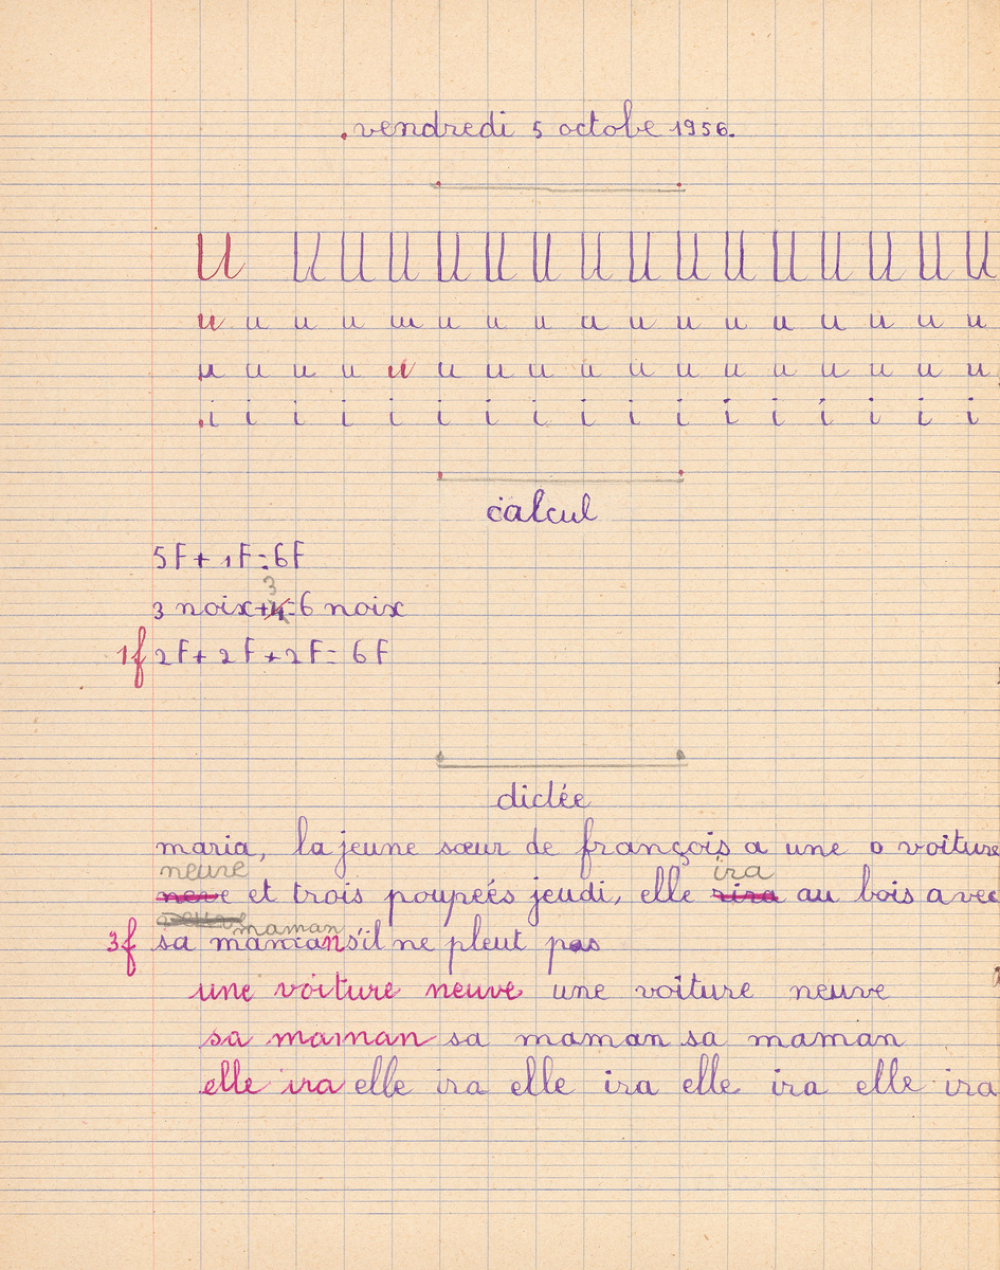 vendredi 5 octobe 1956.
u u u u u u u u u u u u u u u u
u u u u u u u u u u u u u u u u u
u u u u u u u u u u u u u u u u u
i i i i i i i i i i i i i i i i i
calcul
5F + 1F = 6F
3
3 noix + 4 = 6 noix
1f 2F + 2F + 2F = 6F
dictée
maria, la jeune sœur de françois a une o voiture
neuve ira
neve et trois poupeés jeudi, elle rira au bois avec
maman
3f sa mamans'il ne pleut pas
une voiture neuve une voiture neuve
sa maman sa maman sa maman
elle ira elle ira elle ira elle ira elle ira